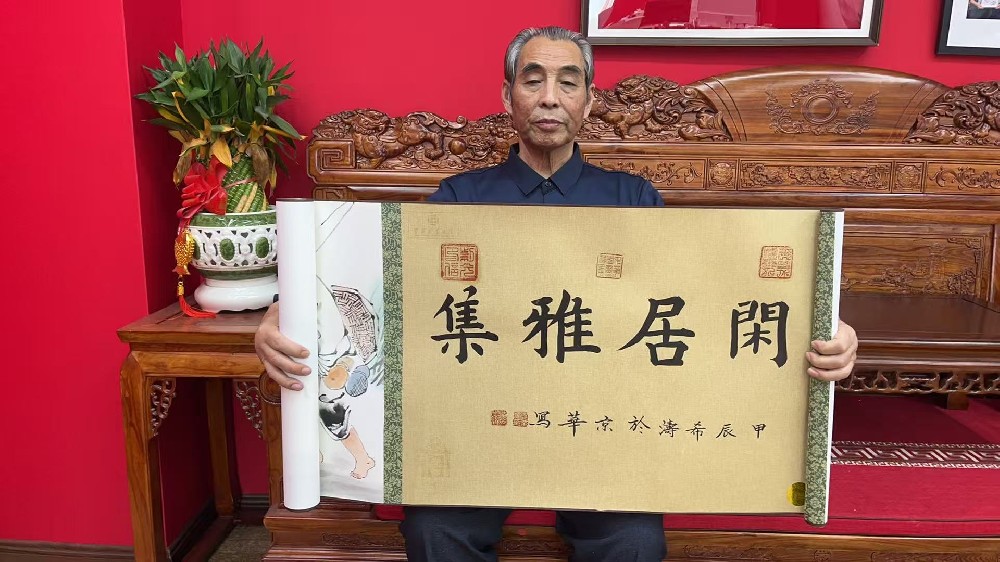 閑居雅集
甲辰希濤於京華寫